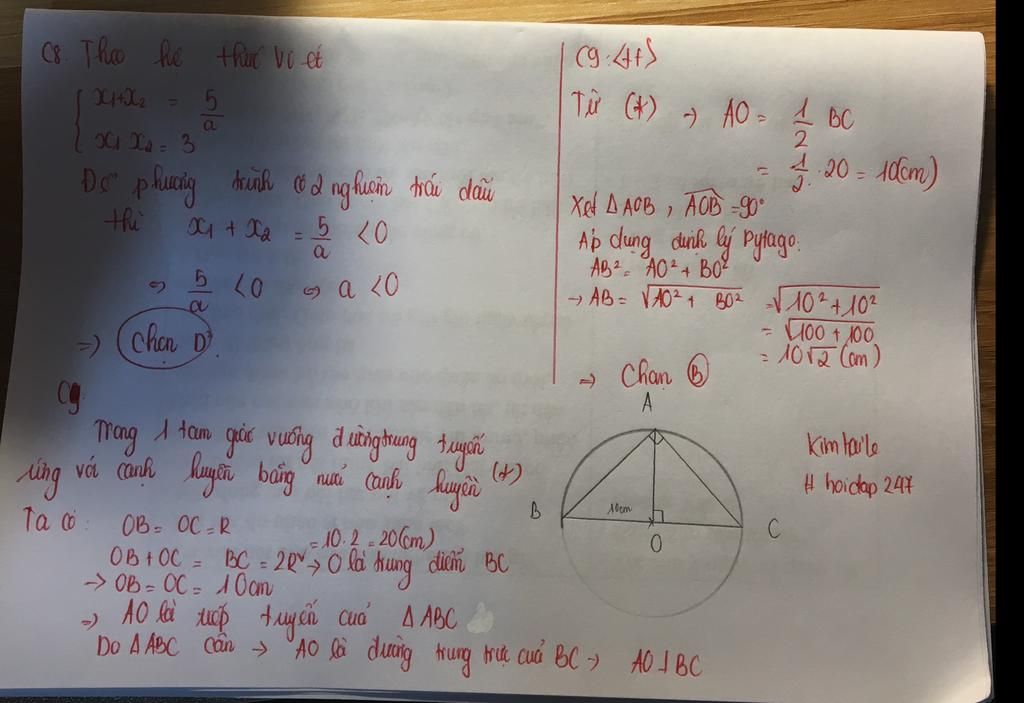 C8. Theo hệ thức Vi ét
x₁+x₂ = 5/a
x₁ x₂ = 3
Để phương trình có 2 nghiệm trái dấu
thì x₁ + x₂ = 5/a < 0
⇔ 5/a < 0 ⇔ a < 0
⇒ Chọn D
C9
Trong 1 tam giác vuông đường trung tuyến
ứng với cạnh huyền bằng nửa cạnh huyền (*)
Ta có : OB = OC = R
OB + OC = BC = 2R = 10.2 = 20(cm) → O là trung điểm BC
→ OB = OC = 10cm
⇒ AO là tuyến của Δ ABC
Do Δ ABC cân → AO là đường trung trực của BC → AO ⊥ BC
C9: <tt>
Từ (*) → AO = 1/2 BC
= 1/2 . 20 = 10(cm)
Xét Δ AOB , AOB = 90°
Áp dụng định lý Pytago.
AB² = AO² + BO²
→ AB = √AO² + BO² = √10² + 10²
= √100 + 100
= 10√2 (cm)
⇒ Chọn B
A
B
10cm
O
C
Kimtaile
# hoidap 247